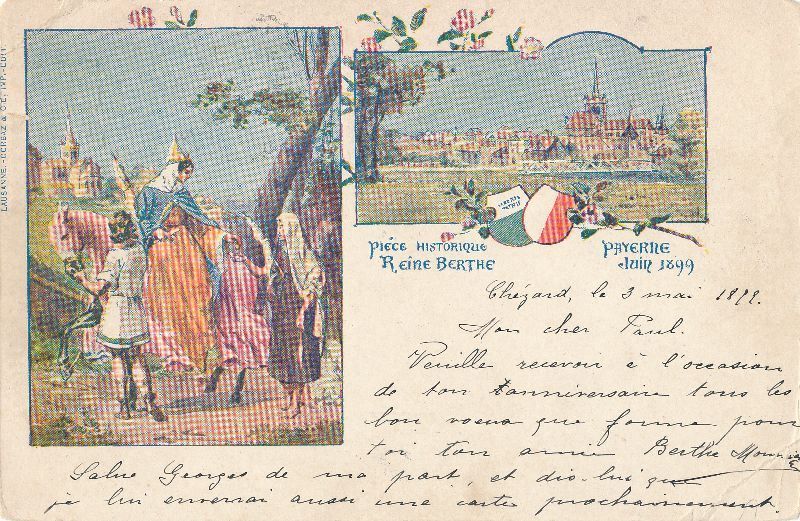 LAUSANNE.-CORBAZ & CIE. IMP.-EDIT.
LIBERTÉ
ET
PATRIE
PIÉCE HISTORIQUE
REINE BERTHE
PAYERNE
JUIN 1899
Chézard, le 3 mai 1899.
Mon cher Paul.
Veuille recevoir à l'occasion
de ton anniversaire tous les
bon voeux que forme pour
toi ton amie Berthe
Salue Georges de ma part, et dis-lui que
je lui enverrai aussi une carte prochainement.